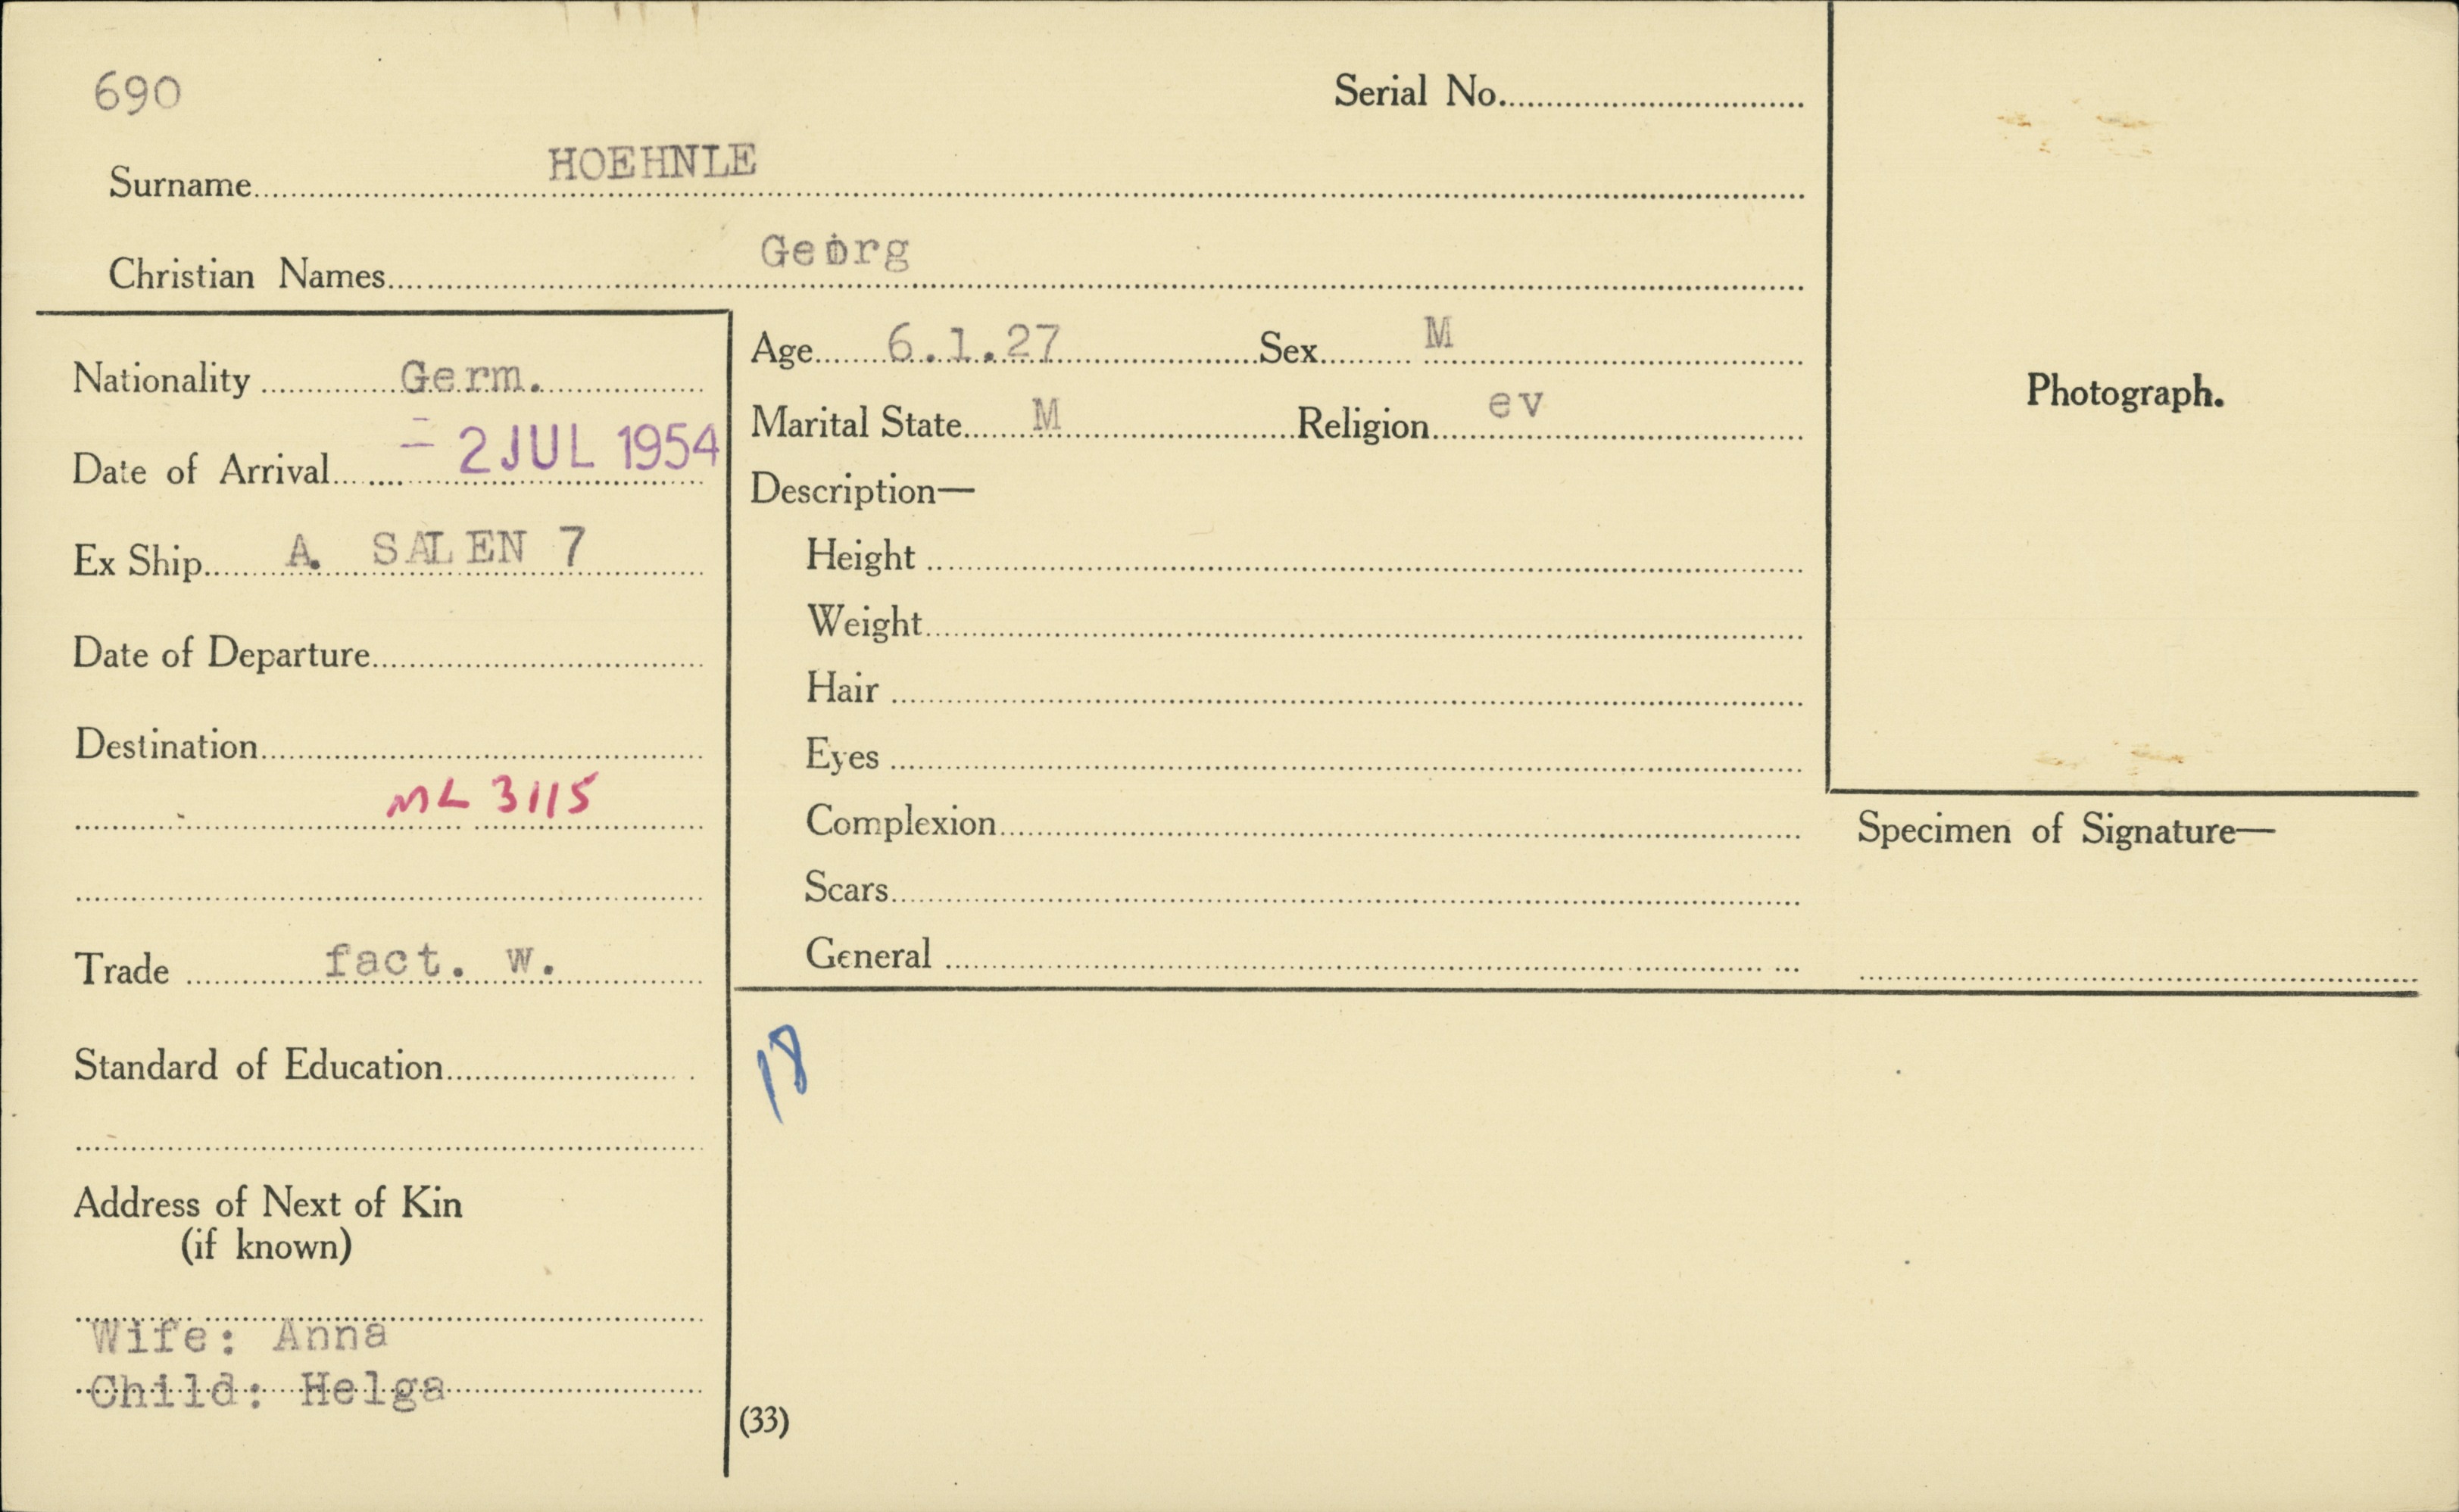 690
Serial No.
Surname HOEHNLE
Christian Names Georg
Nationality Germ.
Date of Arrival - 2 JUL 1954
Ex Ship A. SALEN 7
Date of Departure
Destination
ML 3115
Trade fact. w.
Standard of Education
Address of Next of Kin
(if known)
Wife: Anna
Child: Helga
Age 6.1.27 Sex M
Marital State M Religion ev
Description—
Height
Weight
Hair
Eyes
Complexion
Scars
General
Photograph.
Specimen of Signature—
18
(33)